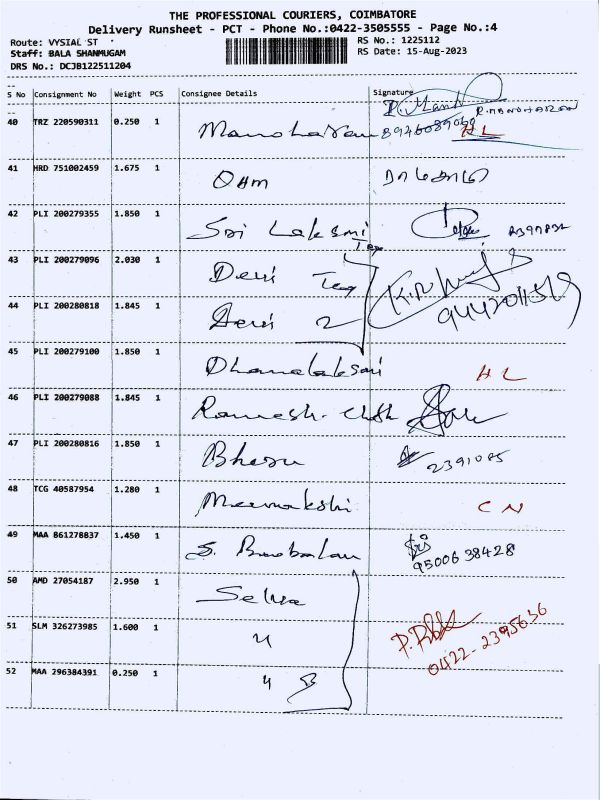 THE PROFESSIONAL COURIERS, COIMBATORE
Delivery Runsheet - PCT - Phone No.:0422-3505555 - Page No.:4
Route: VYSIAL ST
RS No.: 1225112
Staff: BALA SHANMUGAM
RS Date: 15-Aug-2023
DRS No.: DCJB122511204
S No Consignment No Weight PCS Consignee Details Signature
40 TRZ 220590311 0.250 1 Manoharan R.MANOHARAN
8946089060 HL
41 HRD 751002459 1.675 1 OHM
42 PLI 200279355 1.850 1 Sri Laksmi
Tex
43 PLI 200279096 2.030 1 Devi Tex
44 PLI 200280818 1.845 1 Devi 2
45 PLI 200279100 1.850 1 Dhanalaksmi HL
46 PLI 200279088 1.845 1 Ramesh. Cloth
47 PLI 200280816 1.850 1 Bheru 2391085
48 TCG 40587954 1.280 1 Meenakshi CN
49 MAA 861278837 1.450 1 S. Baabalan Sri
9500638428
50 AMD 27054187 2.950 1 Selva
51 SLM 326273985 1.600 1 4
0422-2395636
52 MAA 296384391 0.250 1 4 3